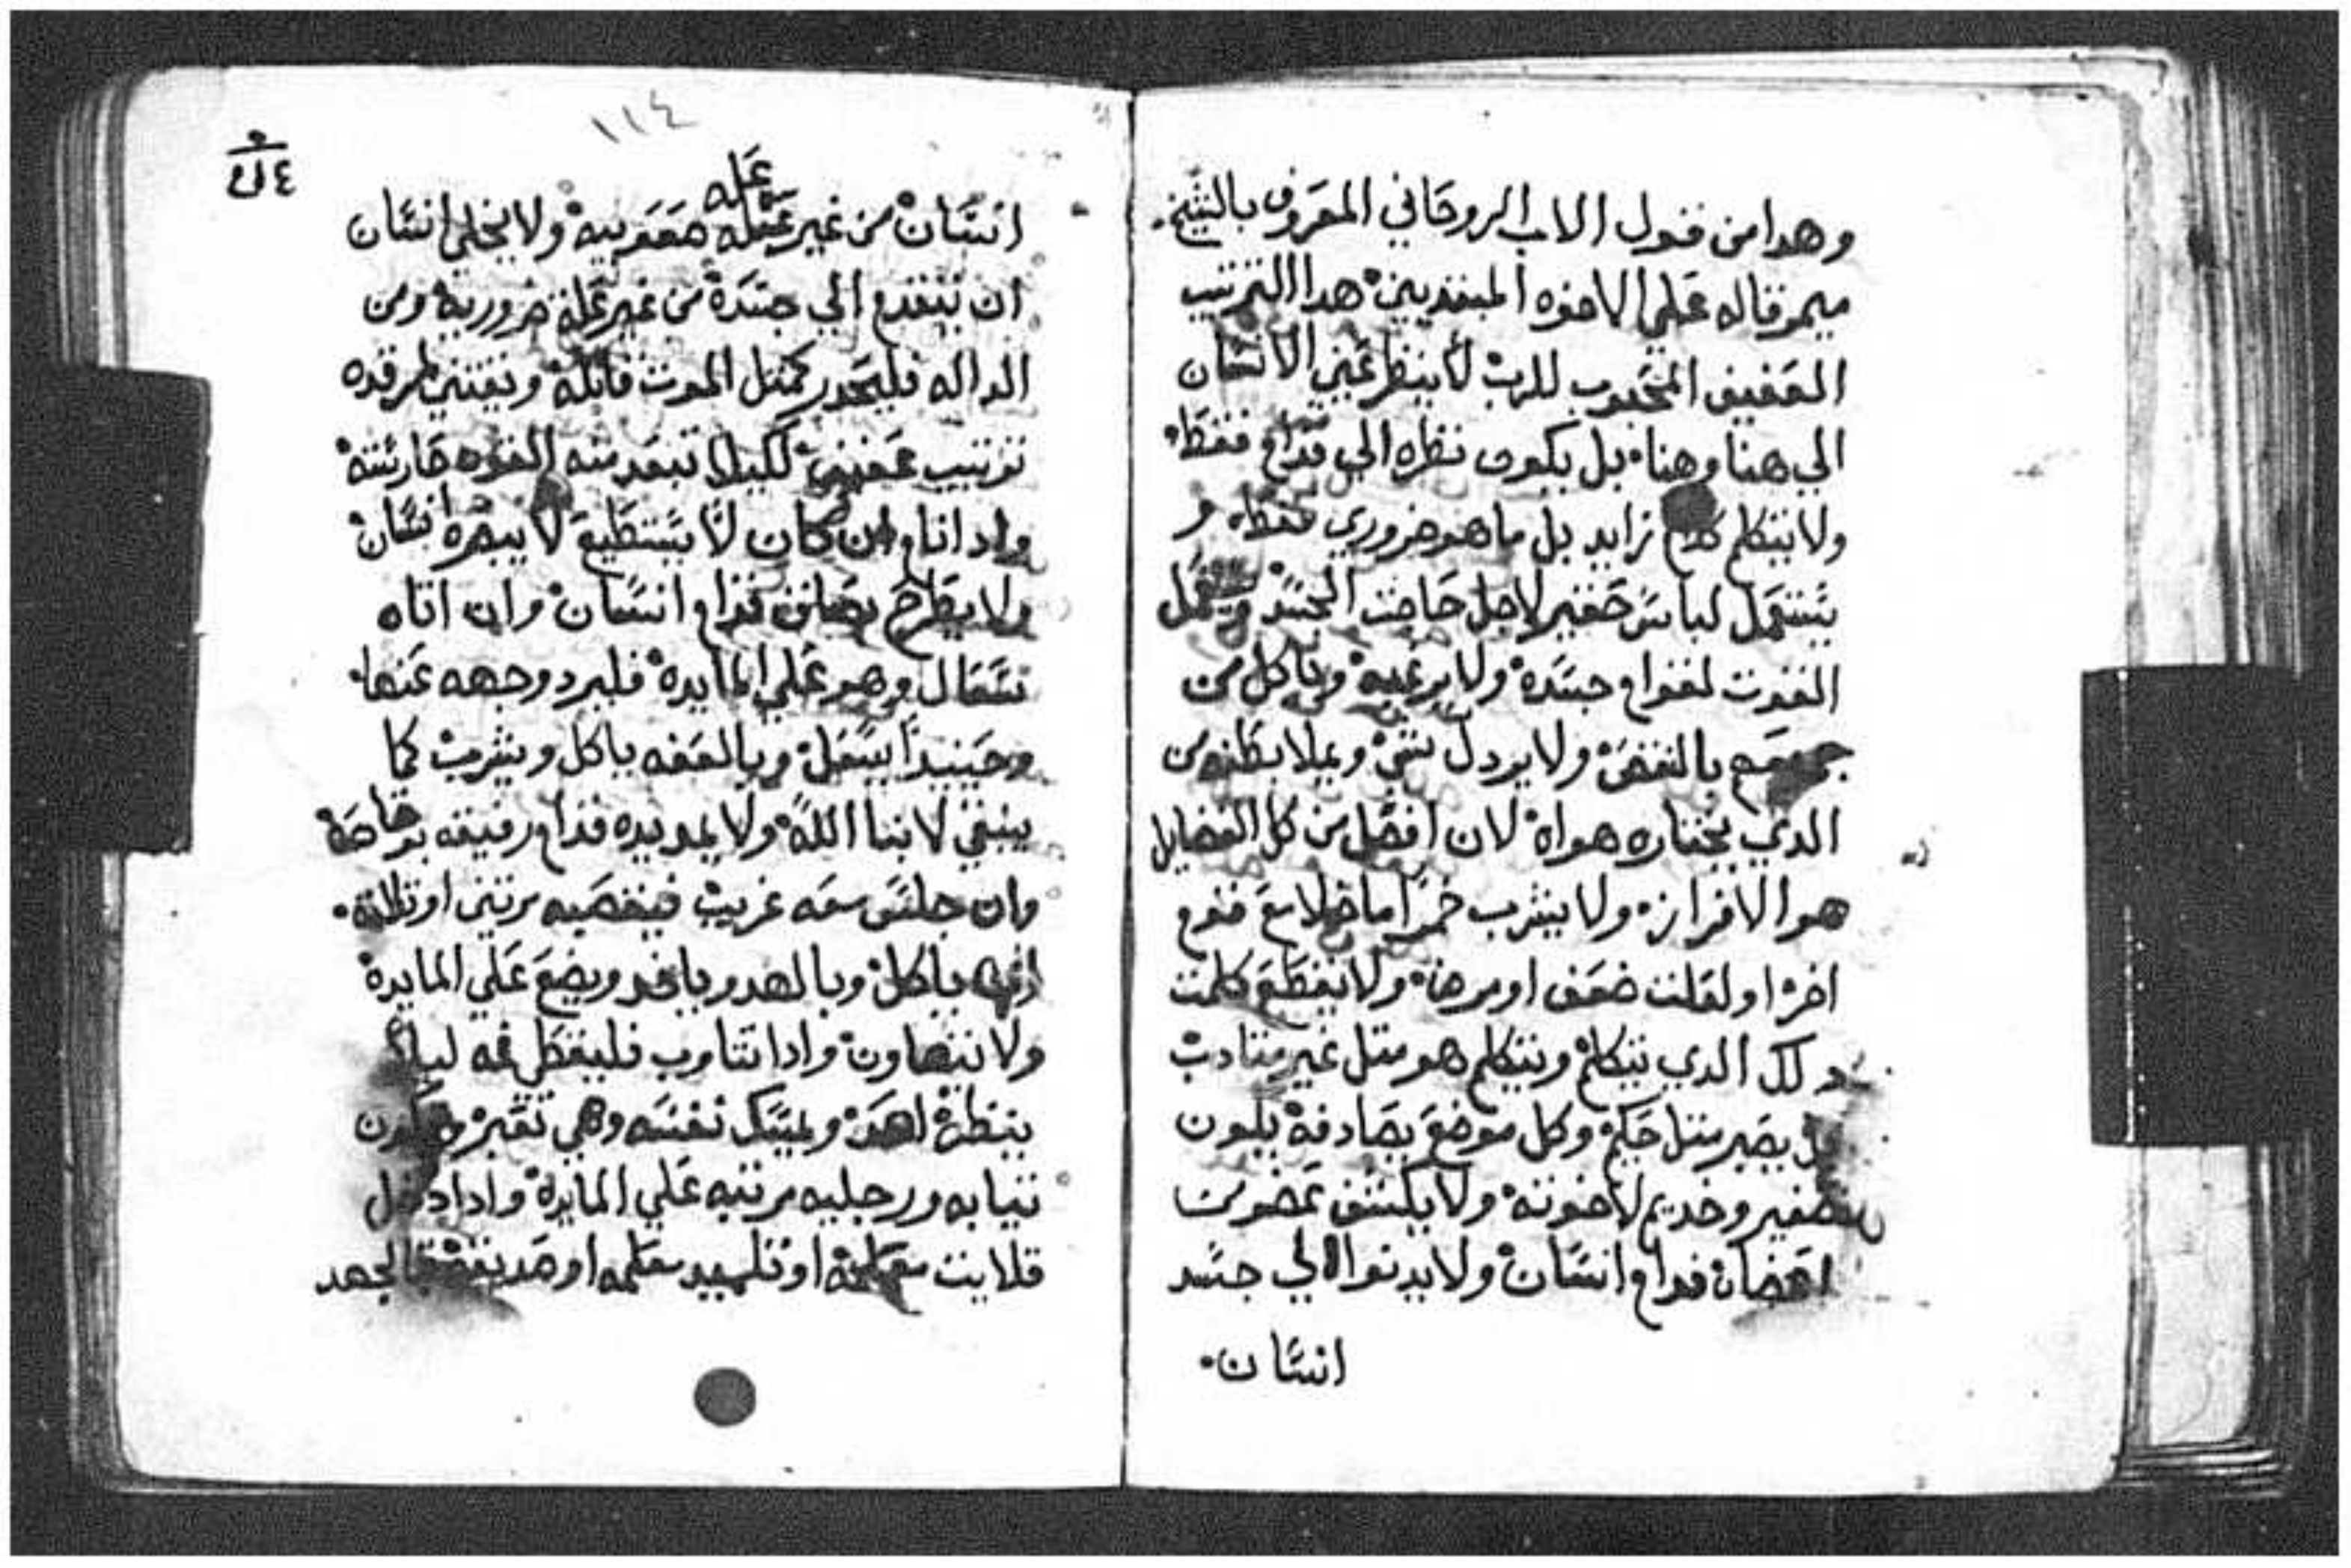 وهدا من قول الاب الروحاني المعروف بالشيخ.
ميمر قاله علي الاخوه المبتديين هدا الترتيب
العفيف المحبوب للرب لا ينظر عيني الانسان
الي هنا وهنا بل يكون نظره الي قدام فقط
ولا يتكلم كلام زايد بل ما هو ضروري فقط و
يستعمل لباس حقير لاجل حاجت الجسد
القوت لقوام جسده ولا يرغبه وياكل من
بالنقص ولا يردل شي ويملا بطنه من
الدي يختاره هواه لان افضل من كل الفضايل
هو الافراز ولا يشرب خمرا ما خلا مع قوم
اخر او لعلت ضعف او مرض ولا يقطع كلمت
الدي يتكلم ويتكلم هو متل غير متادب
يصير متل حكيم وكل موضع يصادفه يكون
وخديم لاخوته ولا يكشف عضو من
اعضاه قدام انسان ولا يدنوا الي جسد
انسان.
١١٤
عله
انسان من غير عله ولا يخلي انسان
ان يتقدم الي جسده من غير عله ضروريه ومن
الداله فليحدر كمتل الموت قاتله ويقتني لمرقده
ترتيب عفيفي لكيلا تبعد منه القوه حارسته
وادا نام وان كان لا يستطيع لا يبصره انسان
ولا يطرح بصاق قدام انسان وان اتاه
سعال وهو علي المايده فليرد وجهه عنها.
وحينيدا يسعل وبالعفه ياكل ويشرب كما
ينبغي لابنا الله ولا يمد يده قدام رفيقه بوقاحه
وان جلس معه غريب فيغصبه مرتين او تلاته.
ياكل وبالهدو ياخد ويضع علي المايده
ولا يتهاون وادا تتاوب فليغطي فمه ليلا
ينظره احد وليمسك نفسه وهي تعبر ويكون
تيابه ورجليه مرتبه علي المايده وادا دخل
قلايت معلمه او تلميد معلمه او صديقه فالجهد